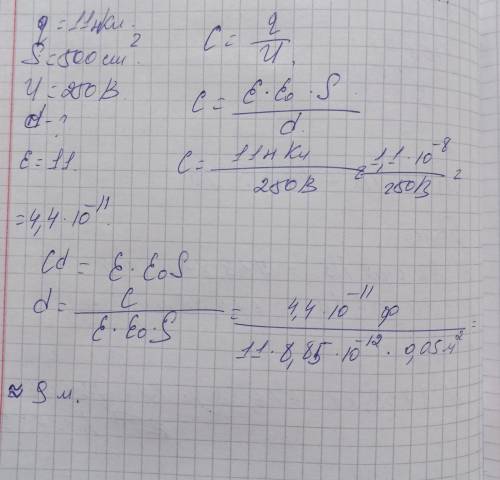 q = 11нКл.
S = 500 см².
U = 250В
d - ?
ε = 11.
C = q / U.
C = ε · ε₀ · S / d.
C = 11нКл / 250В = 1,1 · 10⁻⁸ / 250В =
= 4,4 · 10⁻¹¹.
Cd = ε · ε₀S
d = C / ε · ε₀ · S = 4,4 · 10⁻¹¹ ф / 11 · 8,85 · 10⁻¹² · 0,05м² =
≈ 9 м.